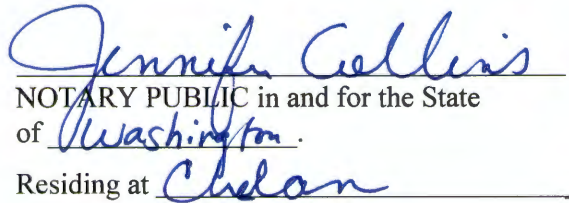 Jennifer Collins
NOTARY PUBLIC in and for the State
of Washington.
Residing at Chelan